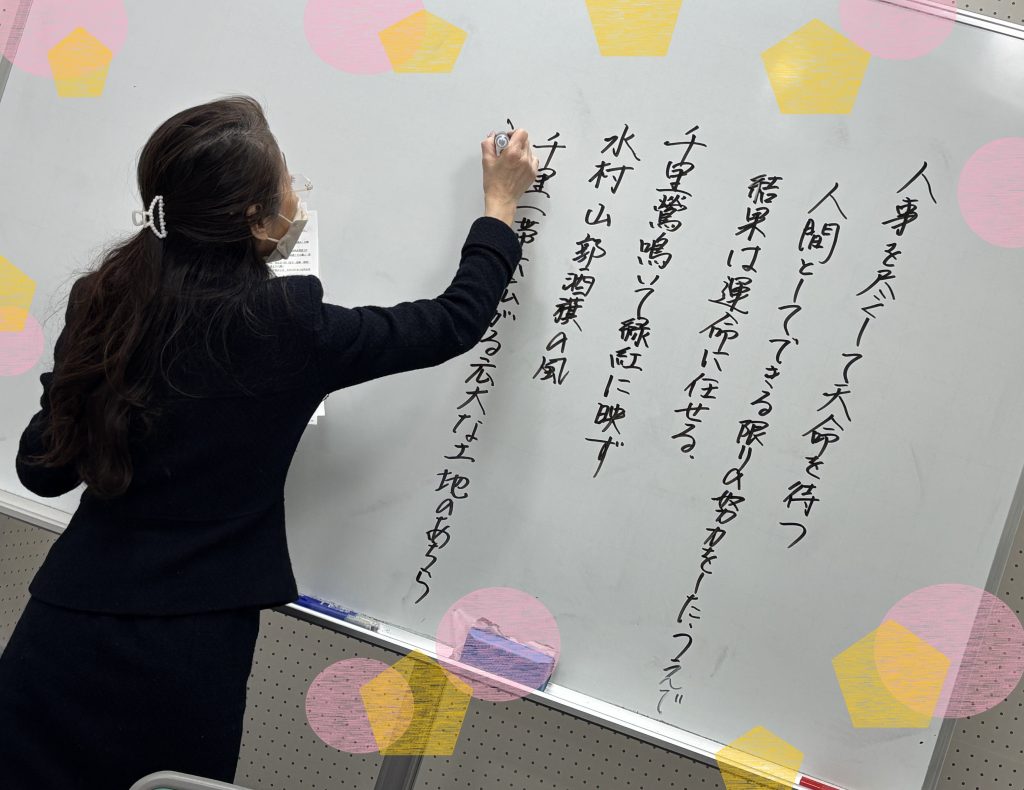 人事を尽くして天命を待つ
人間としてできる限りの努力をしたうえで
結果は運命に任せる。
千里鶯鳴いて緑紅に映ず
水村山郭酒旗の風
千里一帯に広がる広大な土地のあちら